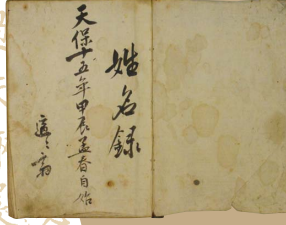 姓名録
天保十五年甲辰孟春自始